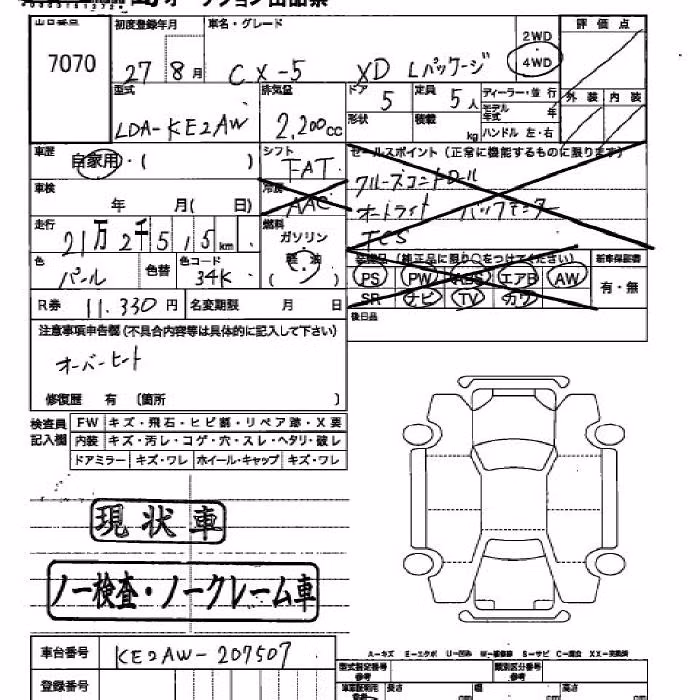 オークション出品票
出品番号 初度登録年月 車名・グレード 2WD 評価点
7070 27 8月 CX-5 XD Lパッケージ 4WD
型式 排気量 ドア 定員 ディーラー・並行 外装 内装
LDA-KE2AW 2,200cc 5 5人 モデル年式 年
形状 積載 kg ハンドル 左・右
車歴 自家用・( ) シフト FAT セールスポイント(正常に機能するものに限ります)
クルーズコントロール
車検 年 月( 日) 冷房 AAC オートライト バックモニター
TCS
走行 21万2千515km 燃料 ガソリン 軽油 ( )
装備品(純正品に限り○をつけてください) 新車保証書
色 パール 色替 色コード 34K PS PW ABS エアB AW 有・無
SR ナビ TV カワ
R券 11,330円 名変期限 月 日
後日品
注意事項申告欄(不具合内容等は具体的に記入して下さい)
オーバーヒート
修復歴 有 〔箇所 〕
検査員記入欄 FW キズ・飛石・ヒビ割・リペア跡・X要
内装 キズ・汚レ・コゲ・穴・スレ・ヘタリ・破レ
ドアミラー キズ・ワレ ホイール・キャップ キズ・ワレ
現状車
ノー検査・ノークレーム車
車台番号 KE2AW-207507
A-キズ E-エクボ U-凹み W-補修跡 S-サビ C-腐食 XX-交換済
登録番号 型式指定番号 参考 類別区分番号 参考
長さ cm 幅 cm 高さ cm